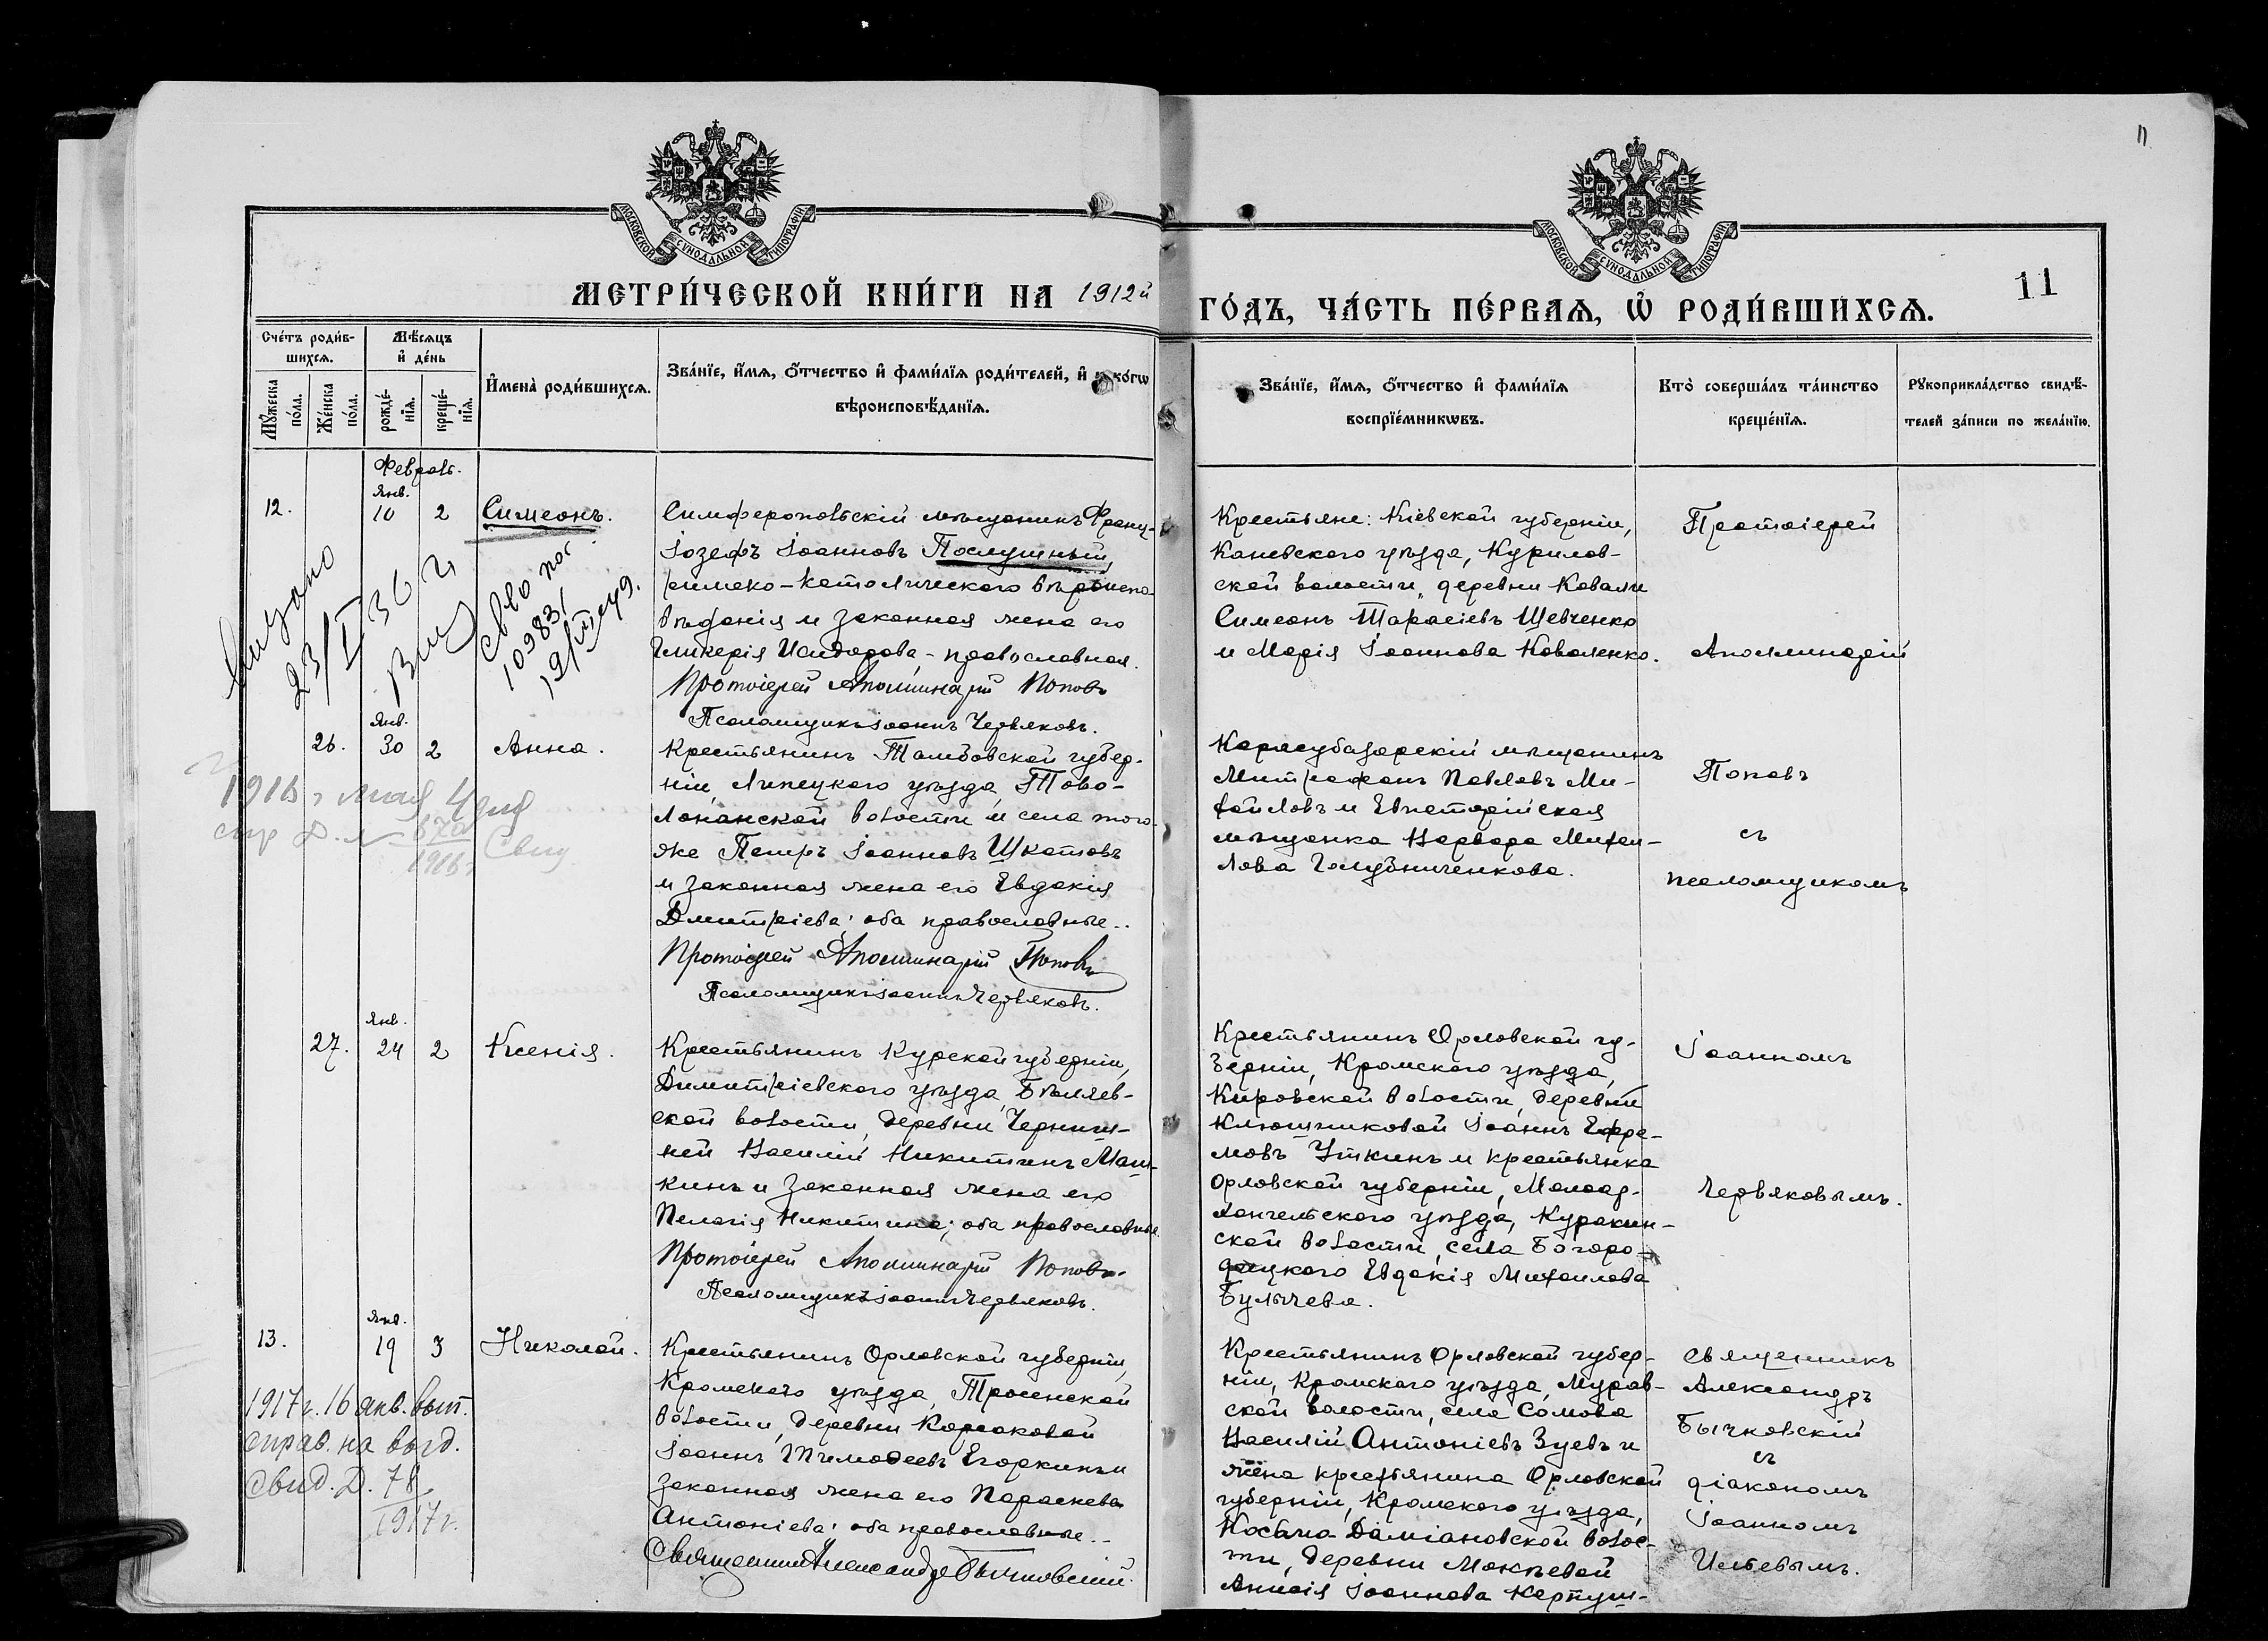 11
МОСКОВСКОЙ СУНОДАЛЬНОЙ ТИПОГРАФІИ
МОСКОВСКОЙ СУНОДАЛЬНОЙ ТИПОГРАФІИ
МЕТРИ́ЧЕСКОЙ КНИ́ГИ НА 1912й
ГО́ДЪ, ЧА́СТЬ ПЕ́РВАЯ, Ѡ҆ РОДИ́ВШИХСЯ.
11
Сче́тъ роди́в-
шихся.
Мꙋ́жеска
по́ла.
Же́нска
по́ла.
Мѣ́сяцъ
и҆ де́нь
рожде́-
нїя.
креще́-
нїя.
И҆мена̀ роди́вшихся.
Зва́нїе, и҆́мя, о҆́тчество и҆ фами́лїя роди́телей, и҆ како́гѡ
вѣроисповѣ́данїя.
Зва́нїе, и҆́мя, о҆́тчество и҆ фами́лїя
воспрїе́мникѡвъ.
Кто̀ соверша́лъ та́инство
креще́нїя.
Рꙋкоприкла́дство свидѣ́-
телей за́писи по жела́нїю.
Февраль.
Янв.
12. 10 2 Симеонъ.
Симферопольскій мѣщанинъ Франц-
Іозефъ Іоанновъ Послушный,
римско-католического вѣроиспо-
вѣданія и законная жена его
Гликерія Исидорова, - православная.
Протоіерей Аполлинарій Поповъ
Псаломщикъ Іоаннъ Червяковъ.
23/I 36 г
10983/
19/III 49.
Крестьяне: Кіевской губерніи,
Каневского уѣзда, Курилов-
ской волости, деревни Ковали
Симеонъ Тарасіевъ Шевченко
и Марія Іоаннова Коваленко.
Протоіерей
Аполлинарій
Янв.
26. 30 2 Анна.
1916 г мая 4 дня
870
1916 г
Свид.
Крестьянинъ Тамбовской губер-
ніи, Липецкого уѣзда, Тово-
Лонанской волости и села того-
же Петръ Іоанновъ Шкатовъ
и законная жена его Евдокія
Димитріева; оба православные..
Протоіерей Аполлинарій Поповъ
Псаломщикъ Іоаннъ Червяковъ.
Карасубазарскій мѣщанинъ
Митрофанъ Павловъ Ми-
хайловъ и Евпаторійская
мѣщанка Варвара Михаи-
лова Голубниченкова.
Поповъ
съ
псаломщикомъ
Янв.
27. 24 2 Ксенія.
Крестьянинъ Курской губерніи,
Димитріевского уѣзда, Бѣляев-
ской волости, деревни Черниш-
ней Василій Никитинъ Маш-
кинъ и законная жена его
Пелагія Никитина; оба православные
Протоіерей Аполлинарій Поповъ
Псаломщикъ Іоаннъ Червяковъ.
Крестьянинъ Орловской гу-
берніи, Кромского уѣзда,
Кировской волости, деревни
Ключниковой Іоаннъ Ефре-
мовъ Уткинъ и крестьянка
Орловской губерніи, Малоар-
хангельского уѣзда, Куракин-
ской волости, села Богоро-
дицкого Евдокія Михаилова
Булычева.
Іоанномъ
Червяковымъ.
Янв.
13. 19 3 Николай.
1917 г. 16 янв. выт.
справ. на выд.
Свид. Д. 78
1917 г.
Крестьянинъ Орловской губерніи,
Кромского уѣзда, Тросенской
волости, деревни Корсаковой
Іоаннъ Тимоѳеевъ Егоркинъ и
законная жена его Параскева
Антоніева; оба православные..
Священникъ Александръ Бычковскій.
Крестьянинъ Орловской губер-
ніи, Кромского уѣзда, Мурав-
ской волости, села Сомова
Василій Антоніевъ Зуевъ и
жена крестьянина Орловской
губерніи, Кромского уѣзда,
Космо Даміановской волос-
ти, деревни Мокѣевой
Анисія Іоаннова Карпуш-
Священникъ
Александръ
Бычковскій
съ
діакономъ
Іоанномъ
Ильевымъ.